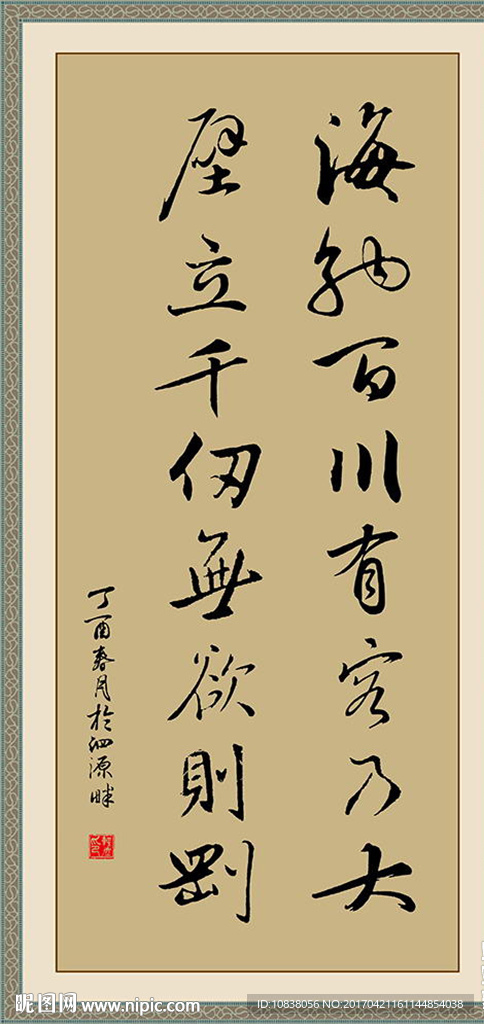 海納百川有容乃大
壁立千仞無欲則剛
丁酉春月於泗源畔
昵图网 www.nipic.com
ID:10838056 NO:20170421161144854038